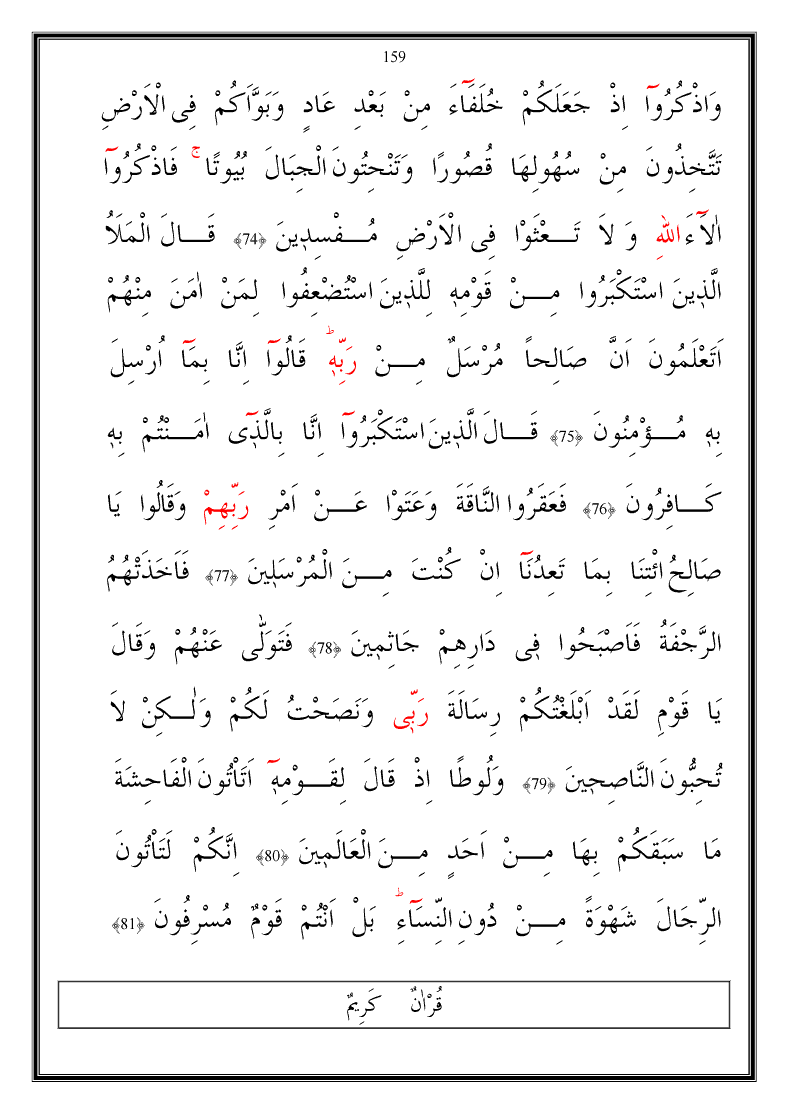 159
وَاذْكُرُوٓا اِذْ جَعَلَكُمْ خُلَفَٓاءَ مِنْ بَعْدِ عَادٍ وَبَوَّاَكُمْ فِى الْاَرْضِ
تَتَّخِذُونَ مِنْ سُهُولِهَا قُصُورًا وَتَنْحِتُونَ الْجِبَالَ بُيُوتًا ۚ فَاذْكُرُوٓا
اٰلَٓاءَ اللهِ وَ لَا تَـــعْثَوْا فِى الْاَرْضِ مُـــفْسِد۪ينَ ﴿74﴾ قَـــالَ الْمَلَاُ
الَّذ۪ينَ اسْتَكْبَرُوا مِـــنْ قَوْمِه۪ لِلَّذ۪ينَ اسْتُضْعِفُوا لِمَنْ اٰمَنَ مِنْهُمْ
اَتَعْلَمُونَ اَنَّ صَالِحاً مُرْسَلٌ مِـــنْ رَبِّه۪ۜ قَالُوٓا اِنَّا بِمَٓا اُرْسِلَ
بِه۪ مُـــؤْمِنُونَ ﴿75﴾ قَـــالَ الَّذ۪ينَ اسْتَكْبَرُوٓا اِنَّا بِالَّذ۪ٓى اٰمَـــنْتُمْ بِه۪
كَـــافِرُونَ ﴿76﴾ فَعَقَرُوا النَّاقَةَ وَعَتَوْا عَـــنْ اَمْرِ رَبِّهِمْ وَقَالُوا يَا
صَالِحُ ائْتِنَا بِمَا تَعِدُنَٓا اِنْ كُنْتَ مِـــنَ الْمُرْسَل۪ينَ ﴿77﴾ فَاَخَذَتْهُمُ
الرَّجْفَةُ فَاَصْبَحُوا ف۪ى دَارِهِمْ جَاثِم۪ينَ ﴿78﴾ فَتَوَلّٰى عَنْهُمْ وَقَالَ
يَا قَوْمِ لَقَدْ اَبْلَغْتُكُمْ رِسَالَةَ رَبّ۪ى وَنَصَحْتُ لَكُمْ وَلٰـــكِنْ لَا
تُحِبُّونَ النَّاصِح۪ينَ ﴿79﴾ وَلُوطًا اِذْ قَالَ لِقَـــوْمِه۪ٓ اَتَاْتُونَ الْفَاحِشَةَ
مَا سَبَقَكُمْ بِهَا مِـــنْ اَحَدٍ مِـــنَ الْعَالَم۪ينَ ﴿80﴾ اِنَّكُمْ لَتَاْتُونَ
الرِّجَالَ شَهْوَةً مِـــنْ دُونِ النِّسَٓاءِۜ بَلْ اَنْتُمْ قَوْمٌ مُسْرِفُونَ ﴿81﴾
قُرْاٰنٌ كَرِيمٌ